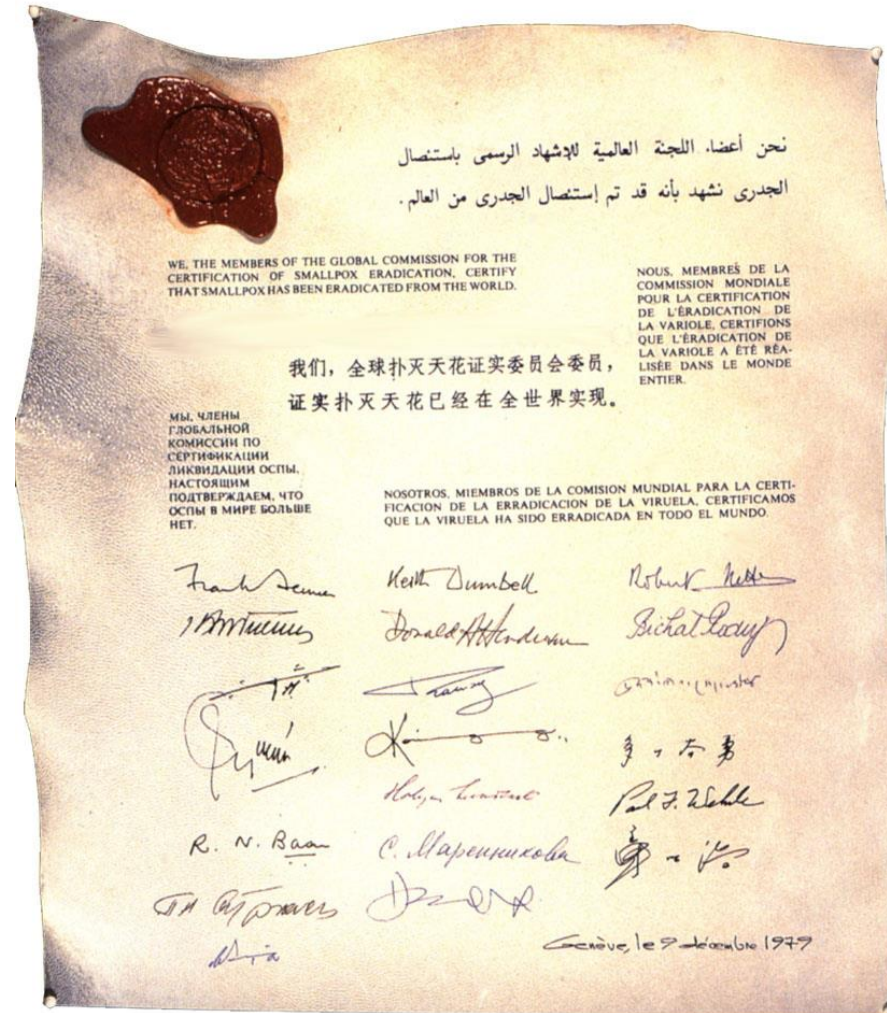 نحن أعضاء اللجنة العالمية للإشهاد الرسمى باستئصال
الجدرى نشهد بأنه قد تم إستئصال الجدرى من العالم.
WE, THE MEMBERS OF THE GLOBAL COMMISSION FOR THE
CERTIFICATION OF SMALLPOX ERADICATION, CERTIFY
THAT SMALLPOX HAS BEEN ERADICATED FROM THE WORLD.
NOUS, MEMBRES DE LA
COMMISSION MONDIALE
POUR LA CERTIFICATION
DE L'ÉRADICATION DE
LA VARIOLE, CERTIFIONS
QUE L'ÉRADICATION DE
LA VARIOLE A ÉTÉ RÉA-
LISÉE DANS LE MONDE
ENTIER.
我们，全球扑灭天花证实委员会委员，
证实扑灭天花已经在全世界实现。
МЫ, ЧЛЕНЫ
ГЛОБАЛЬНОЙ
КОМИССИИ ПО
СЕРТИФИКАЦИИ
ЛИКВИДАЦИИ ОСПЫ,
НАСТОЯЩИМ
ПОДТВЕРЖДАЕМ, ЧТО
ОСПЫ В МИРЕ БОЛЬШЕ
НЕТ.
NOSOTROS, MIEMBROS DE LA COMISION MUNDIAL PARA LA CERTI-
FICACION DE LA ERRADICACION DE LA VIRUELA, CERTIFICAMOS
QUE LA VIRUELA HA SIDO ERRADICADA EN TODO EL MUNDO.
Frank Fenner Keith Dumbell Robert Netter
Donald A Henderson Bichat
Paul F. Wehrle
R. N. Basu С. Маренникова
Genève, le 9 décembre 1979